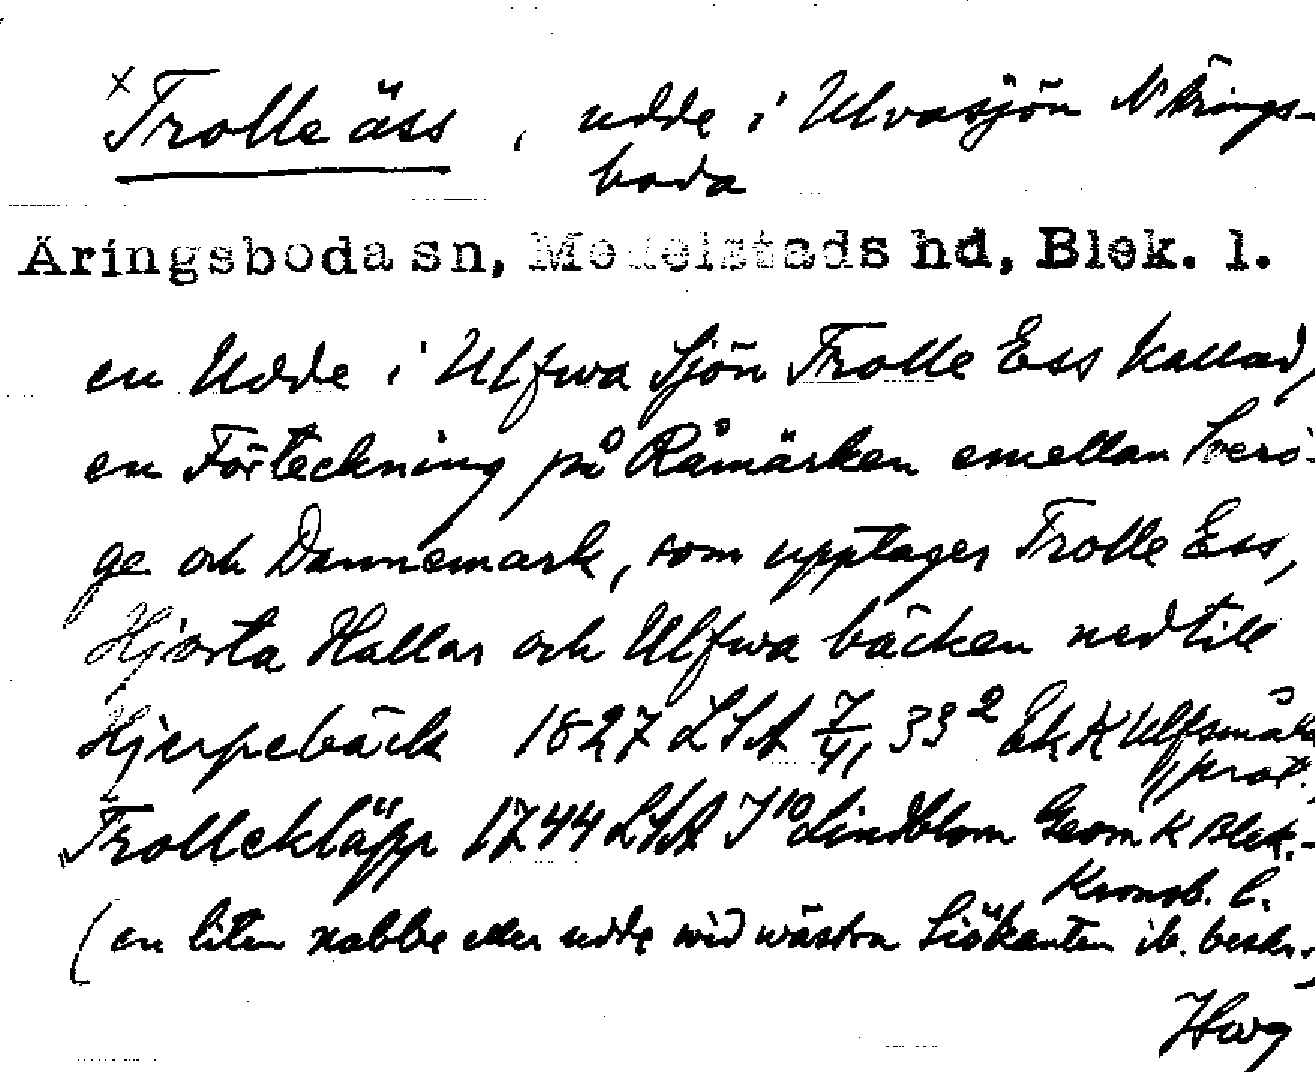 × Trolleäss, udde i Ulvasjön N Ärings-
boda
Äringsboda sn, Medelstads hd, Blek. l.
en Udde i Ulfwa Sjön Trolle Ess kallad,
en Förteckning på Råmärken emellan Sveri-
ge och Dannemark, som upptager Trolle Ess,
Hjorta Hallar och Ulfwa bäcken ned till
Hjerpebäck 1827 LSA 7/41, 33² Ek K Ulfsmåla
prot.
Trollekläpp 1744 LSA J¹⁰ Lindblom Geom K Blek.-
Kronob. l.
(en liten nabbe eller udde wid wästra Siökanten ib. beskr.)